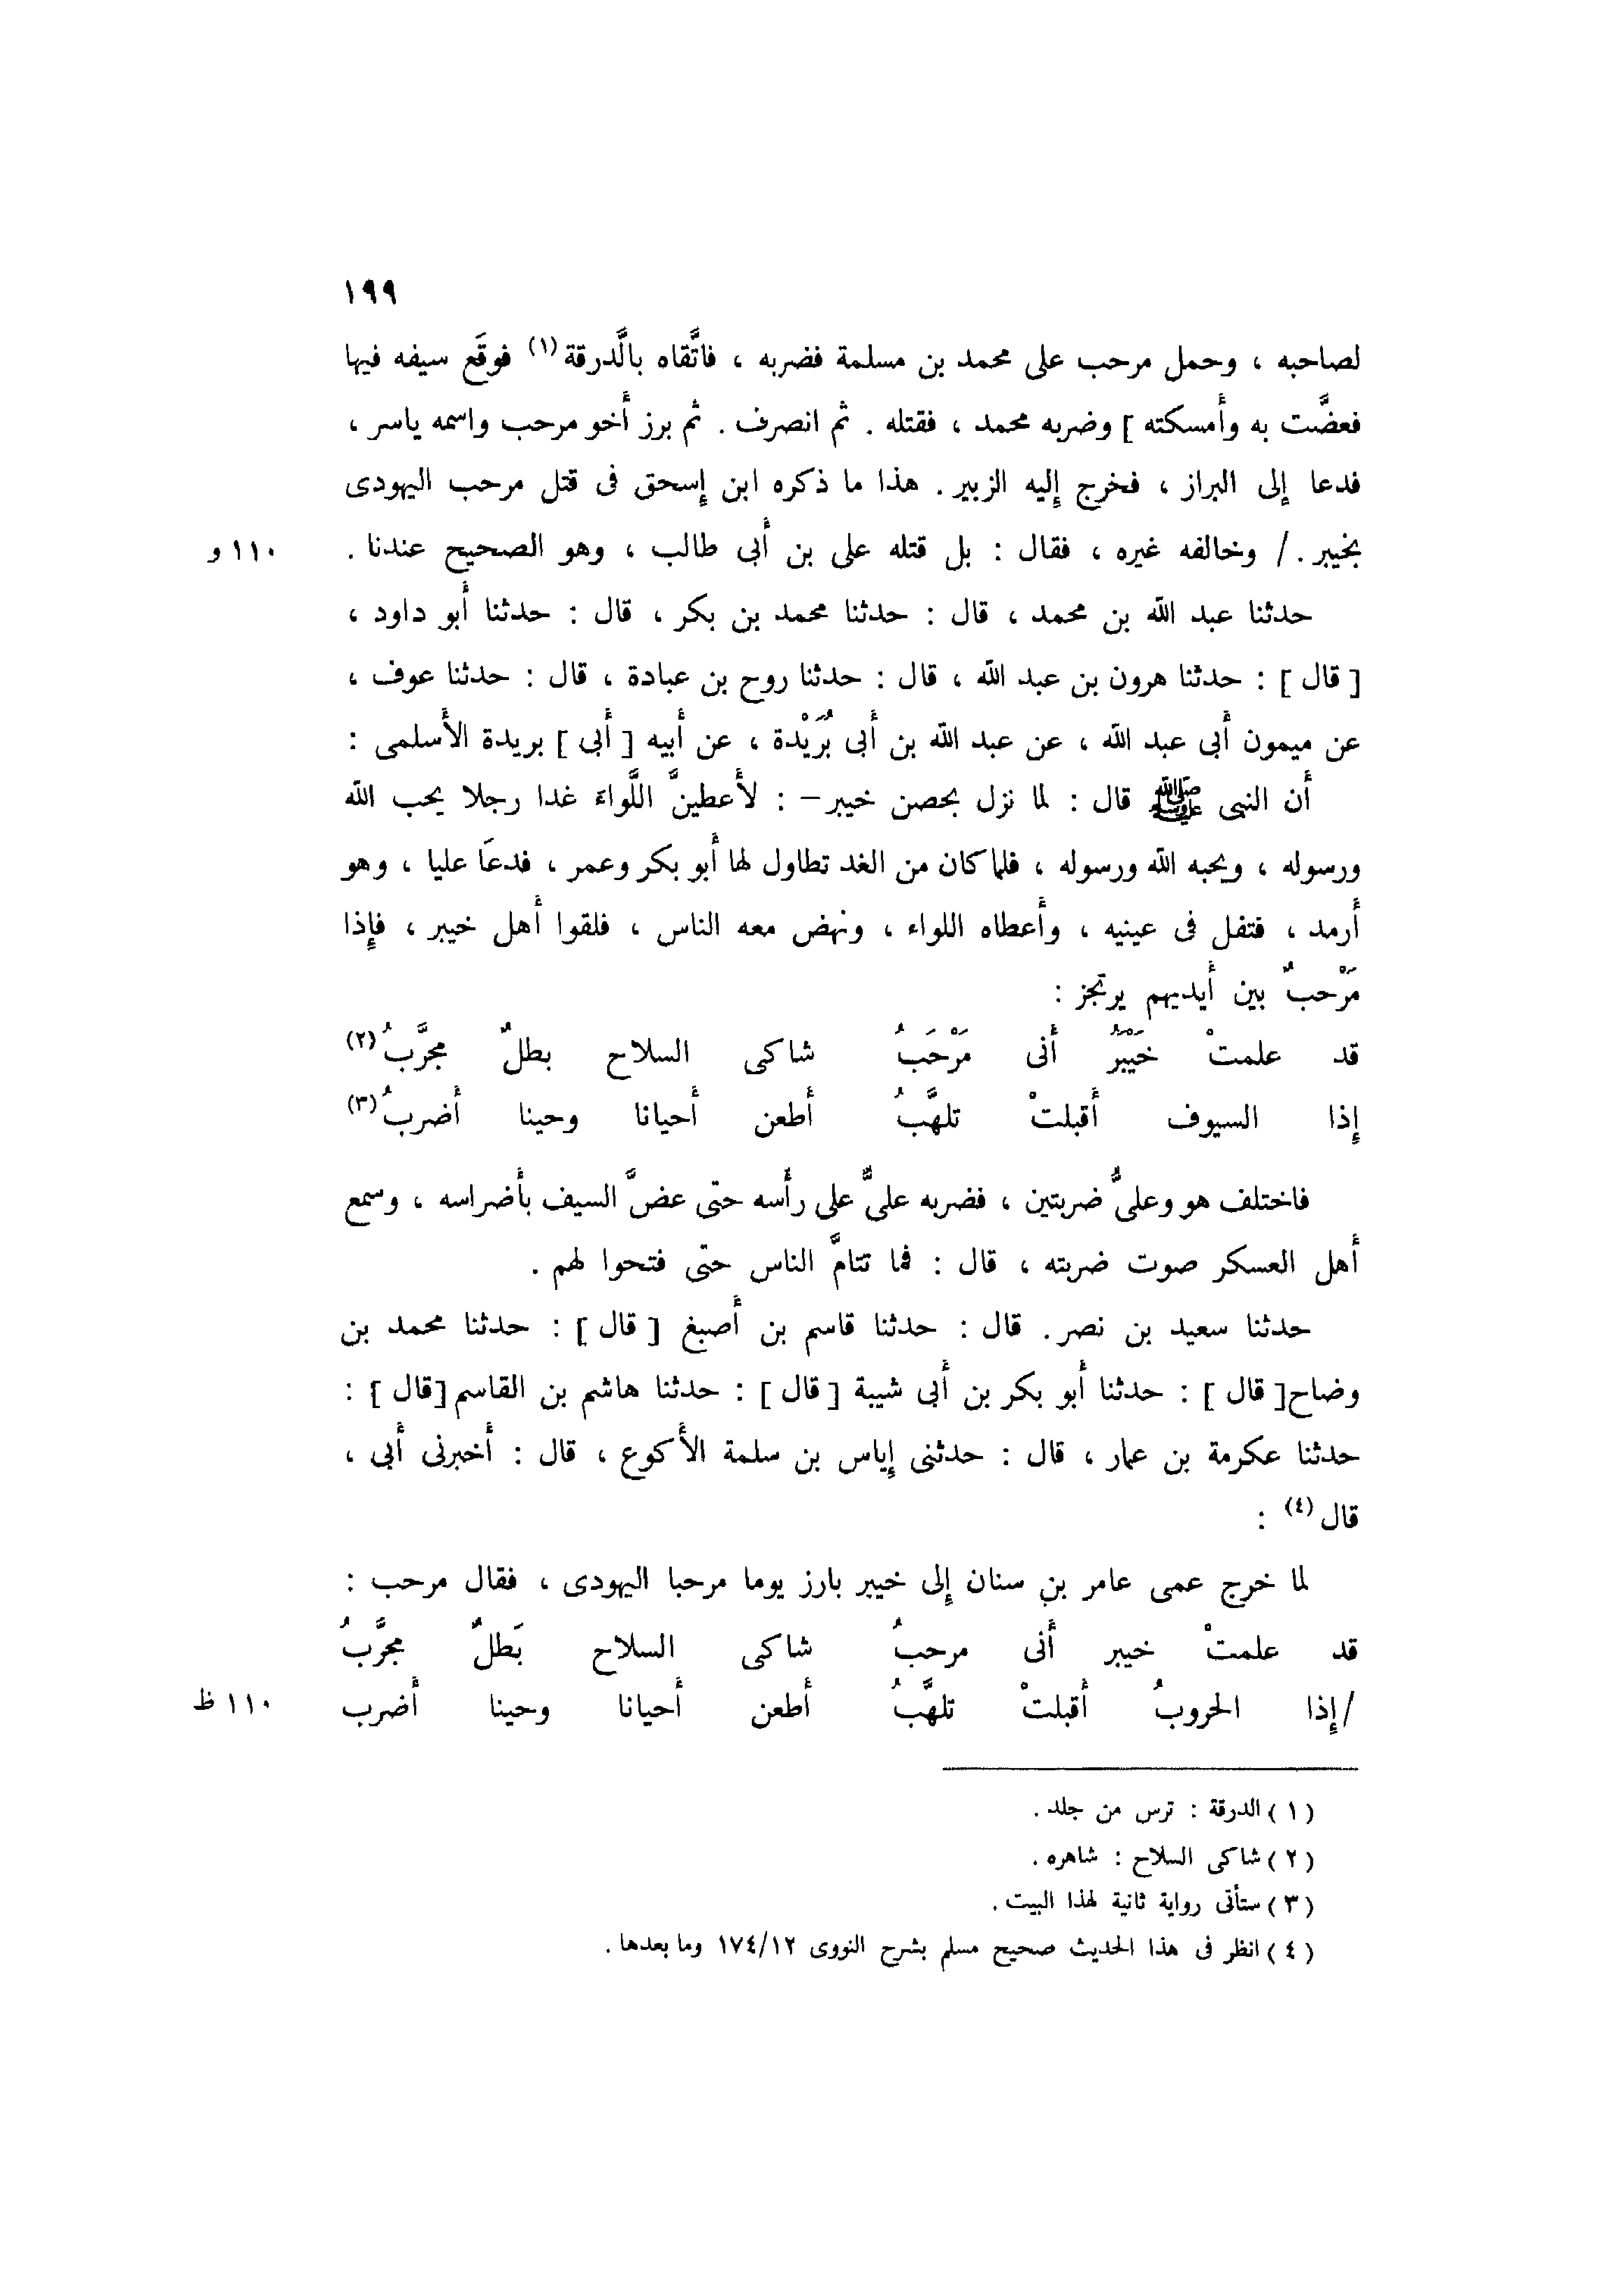 ١٩٩
لصاحبه ، وحمل مرحب على محمد بن مسلمة فضربه ، فاتَّقاه بالَّدرقة (١) فوقَع سيفه فيها
فعضَّت به وأمسكته ] وضربه محمد ، فقتله . ثم انصرف . ثم برز أخو مرحب واسمه ياسر ،
فدعا إلى البراز ، فخرج إليه الزبير . هذا ما ذكره ابن إسحق فى قتل مرحب اليهودى
بخيبر . / وخالفه غيره ، فقال : بل قتله على بن أبى طالب ، وهو الصحيح عندنا . ١١٠ و
حدثنا عبد الله بن محمد ، قال : حدثنا محمد بن بكر ، قال : حدثنا أبو داود ،
[ قال ] : حدثنا هرون بن عبد الله ، قال : حدثنا روح بن عبادة ، قال : حدثنا عوف ،
عن ميمون أبى عبد الله ، عن عبد الله بن أبى بُرَيْدة ، عن أبيه [ أبى ] بريدة الأسلمى :
أن النبى ﷺ قال : لما نزل بحصن خيبر – : لأعطينَّ اللَّواءَ غدا رجلا يحب الله
ورسوله ، ويحبه الله ورسوله ، فلما كان من الغد تطاول لها أبو بكر وعمر ، فدعَا عليا ، وهو
أرمد ، فتفل فى عينيه ، وأعطاه اللواء ، ونهض معه الناس ، فلقوا أهل خيبر ، فإذا
مَرْحبٌ بين أيديهم يرتجز :
قد علمتْ خَيْبَرُ أنى مَرْحَبُ شاكى السلاح بطلٌ مجرَّبُ (٢)
إذا السيوف أقبلتْ تلهَّبُ أطعن أحيانا وحينا أضربُ (٣)
فاختلف هو وعلىٌّ ضربتين ، فضربه علىٌّ على رأسه حتى عضَّ السيف بأضراسه ، وسمع
أهل العسكر صوت ضربته ، قال : فما تتامَّ الناس حتى فتحوا لهم .
حدثنا سعيد بن نصر . قال : حدثنا قاسم بن أصبغ [ قال ] : حدثنا محمد بن
وضاح[ قال ] : حدثنا أبو بكر بن أبى شيبة [ قال ] : حدثنا هاشم بن القاسم[قال ] :
حدثنا عكرمة بن عمار ، قال : حدثنى إياس بن سلمة الأكوع ، قال : أخبرنى أبى ،
قال (٤) :
لما خرج عمى عامر بن سنان إلى خيبر بارز يوما مرحبا اليهودى ، فقال مرحب :
قد علمتْ خيبر أنى مرحبُ شاكى السلاح بَطلٌ مجرَّبُ
/إذا الحروبُ أقبلتْ تلهَّبُ أطعن أحيانا وحينا أضرب ١١٠ ظ
( ١ ) الدرقة : ترس من جلد .
( ٢ ) شاكى السلاح : شاهره .
( ٣ ) ستأتى رواية ثانية لهذا البيت .
( ٤ ) انظر فى هذا الحديث صحيح مسلم بشرح النووى ١٧٤/١٢ وما بعدها .